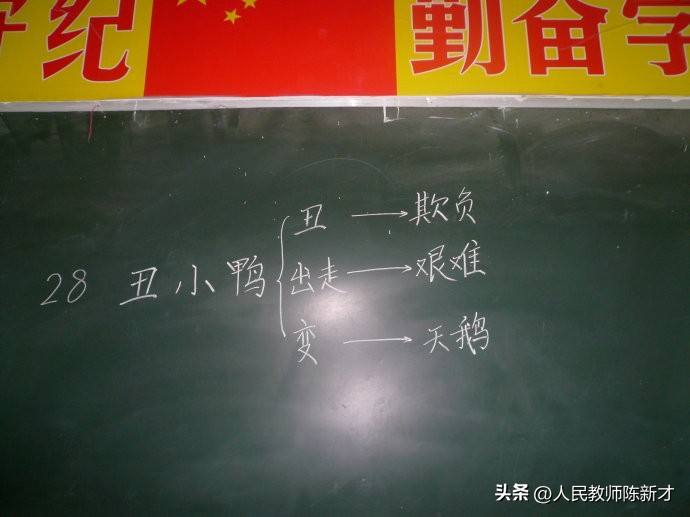 纪 勤奋学
丑 → 欺负
28 丑小鸭 出走 → 艰难
变 → 天鹅
头条 @人民教师陈新才